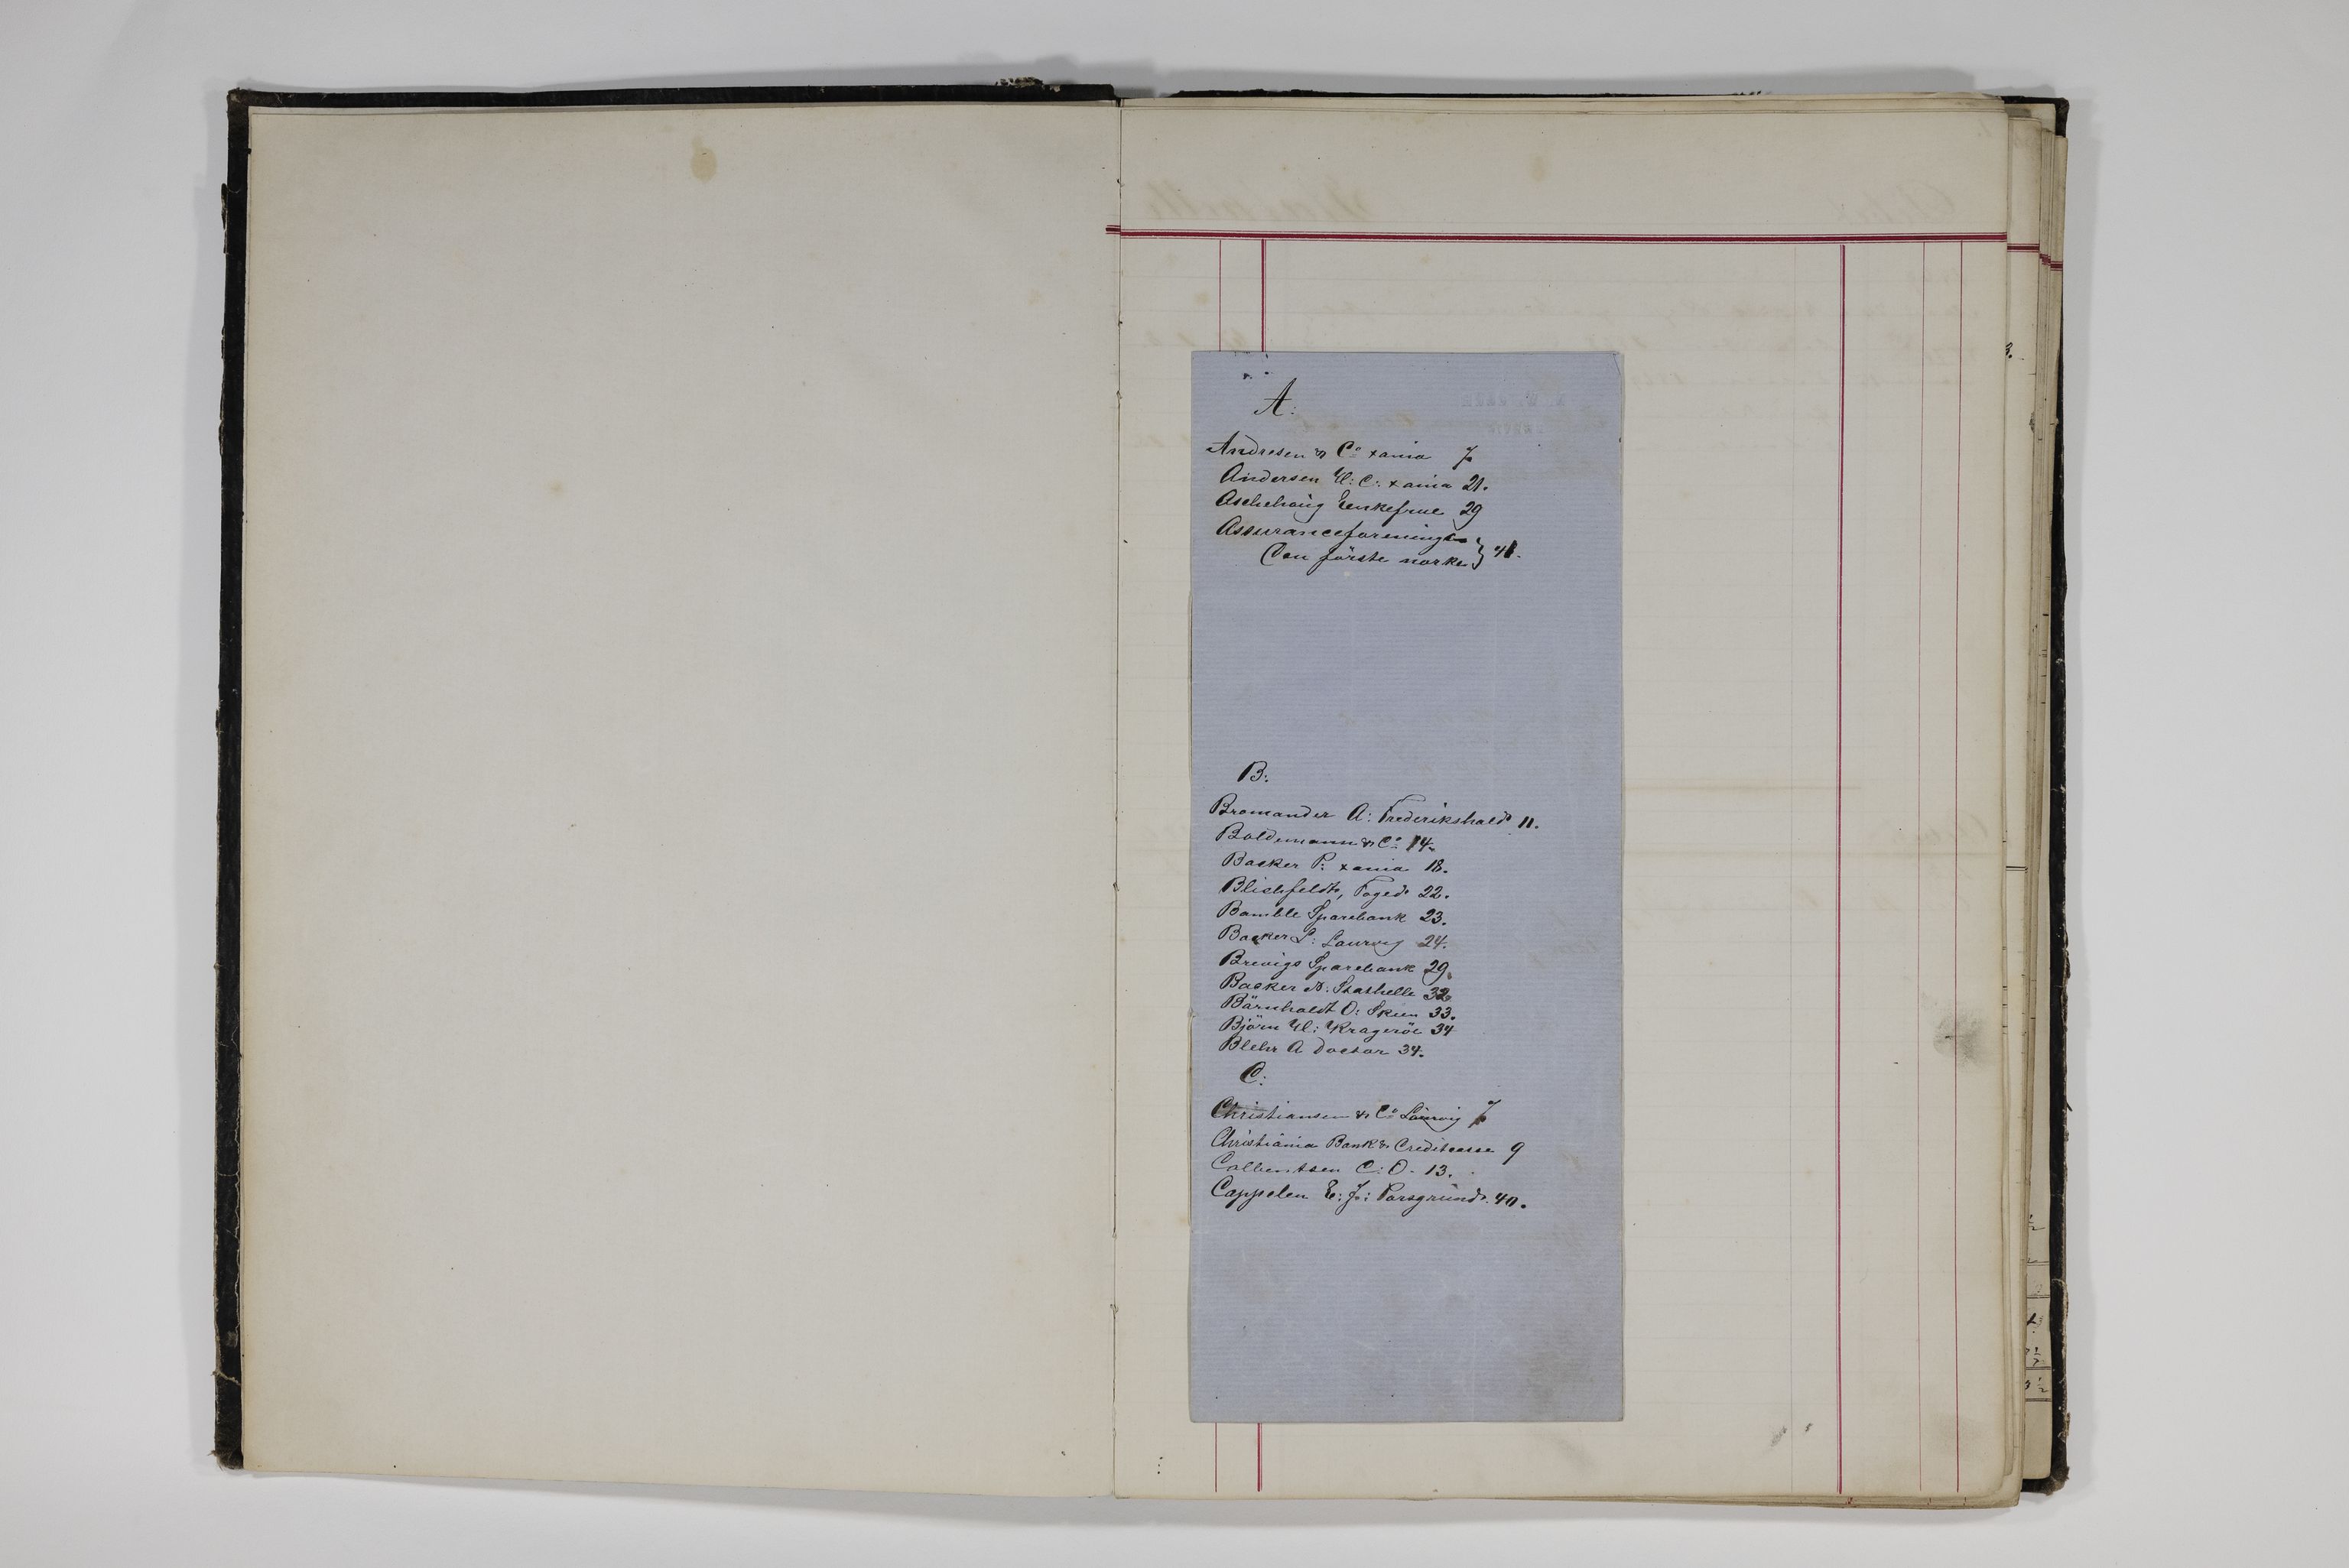 A:
Andresen & Co xania 7
Andersen H: C: xania 21.
Aschehoug Enkefrue 29
Assuranceforeningen
Den förste norke } 41.
B:
Bromander A: Frederikshald 11.
Boldemann & Co 14.
Backer P: xania 18.
Blichfeldt, Foged 22.
Bamble Sparebank 23.
Backer S: Laurvig 24.
Brevigs Sparebank 29.
Backer N: Stathelle 32
Bärnholdt O: Skien 33.
Björn H: Krageröe 34
Blehr A Doctor 34.
C:
Christiansen & Co Laurvig 7
Christiania Bank & Creditcasse 9
Colbentsen C: O. 13.
Cappelen E: J: Porsgrund. 40.